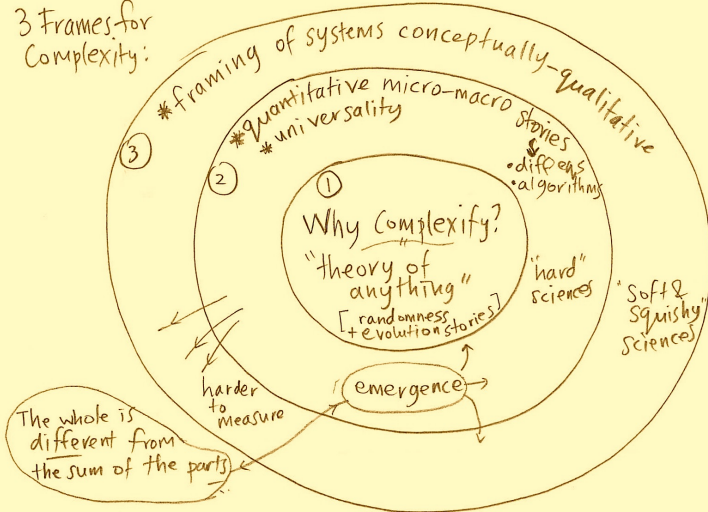 3 Frames for
Complexity:
*framing of systems conceptually-qualitative
③
*quantitative micro-macro stories
*universality
②
• diffeqs
• algorithms
①
Why Complexify?
"theory of
anything"
[randomness
+ evolution stories]
"hard"
sciences
"Soft &
Squishy"
sciences
harder
to
measure
emergence
The whole is
different from
the sum of the parts